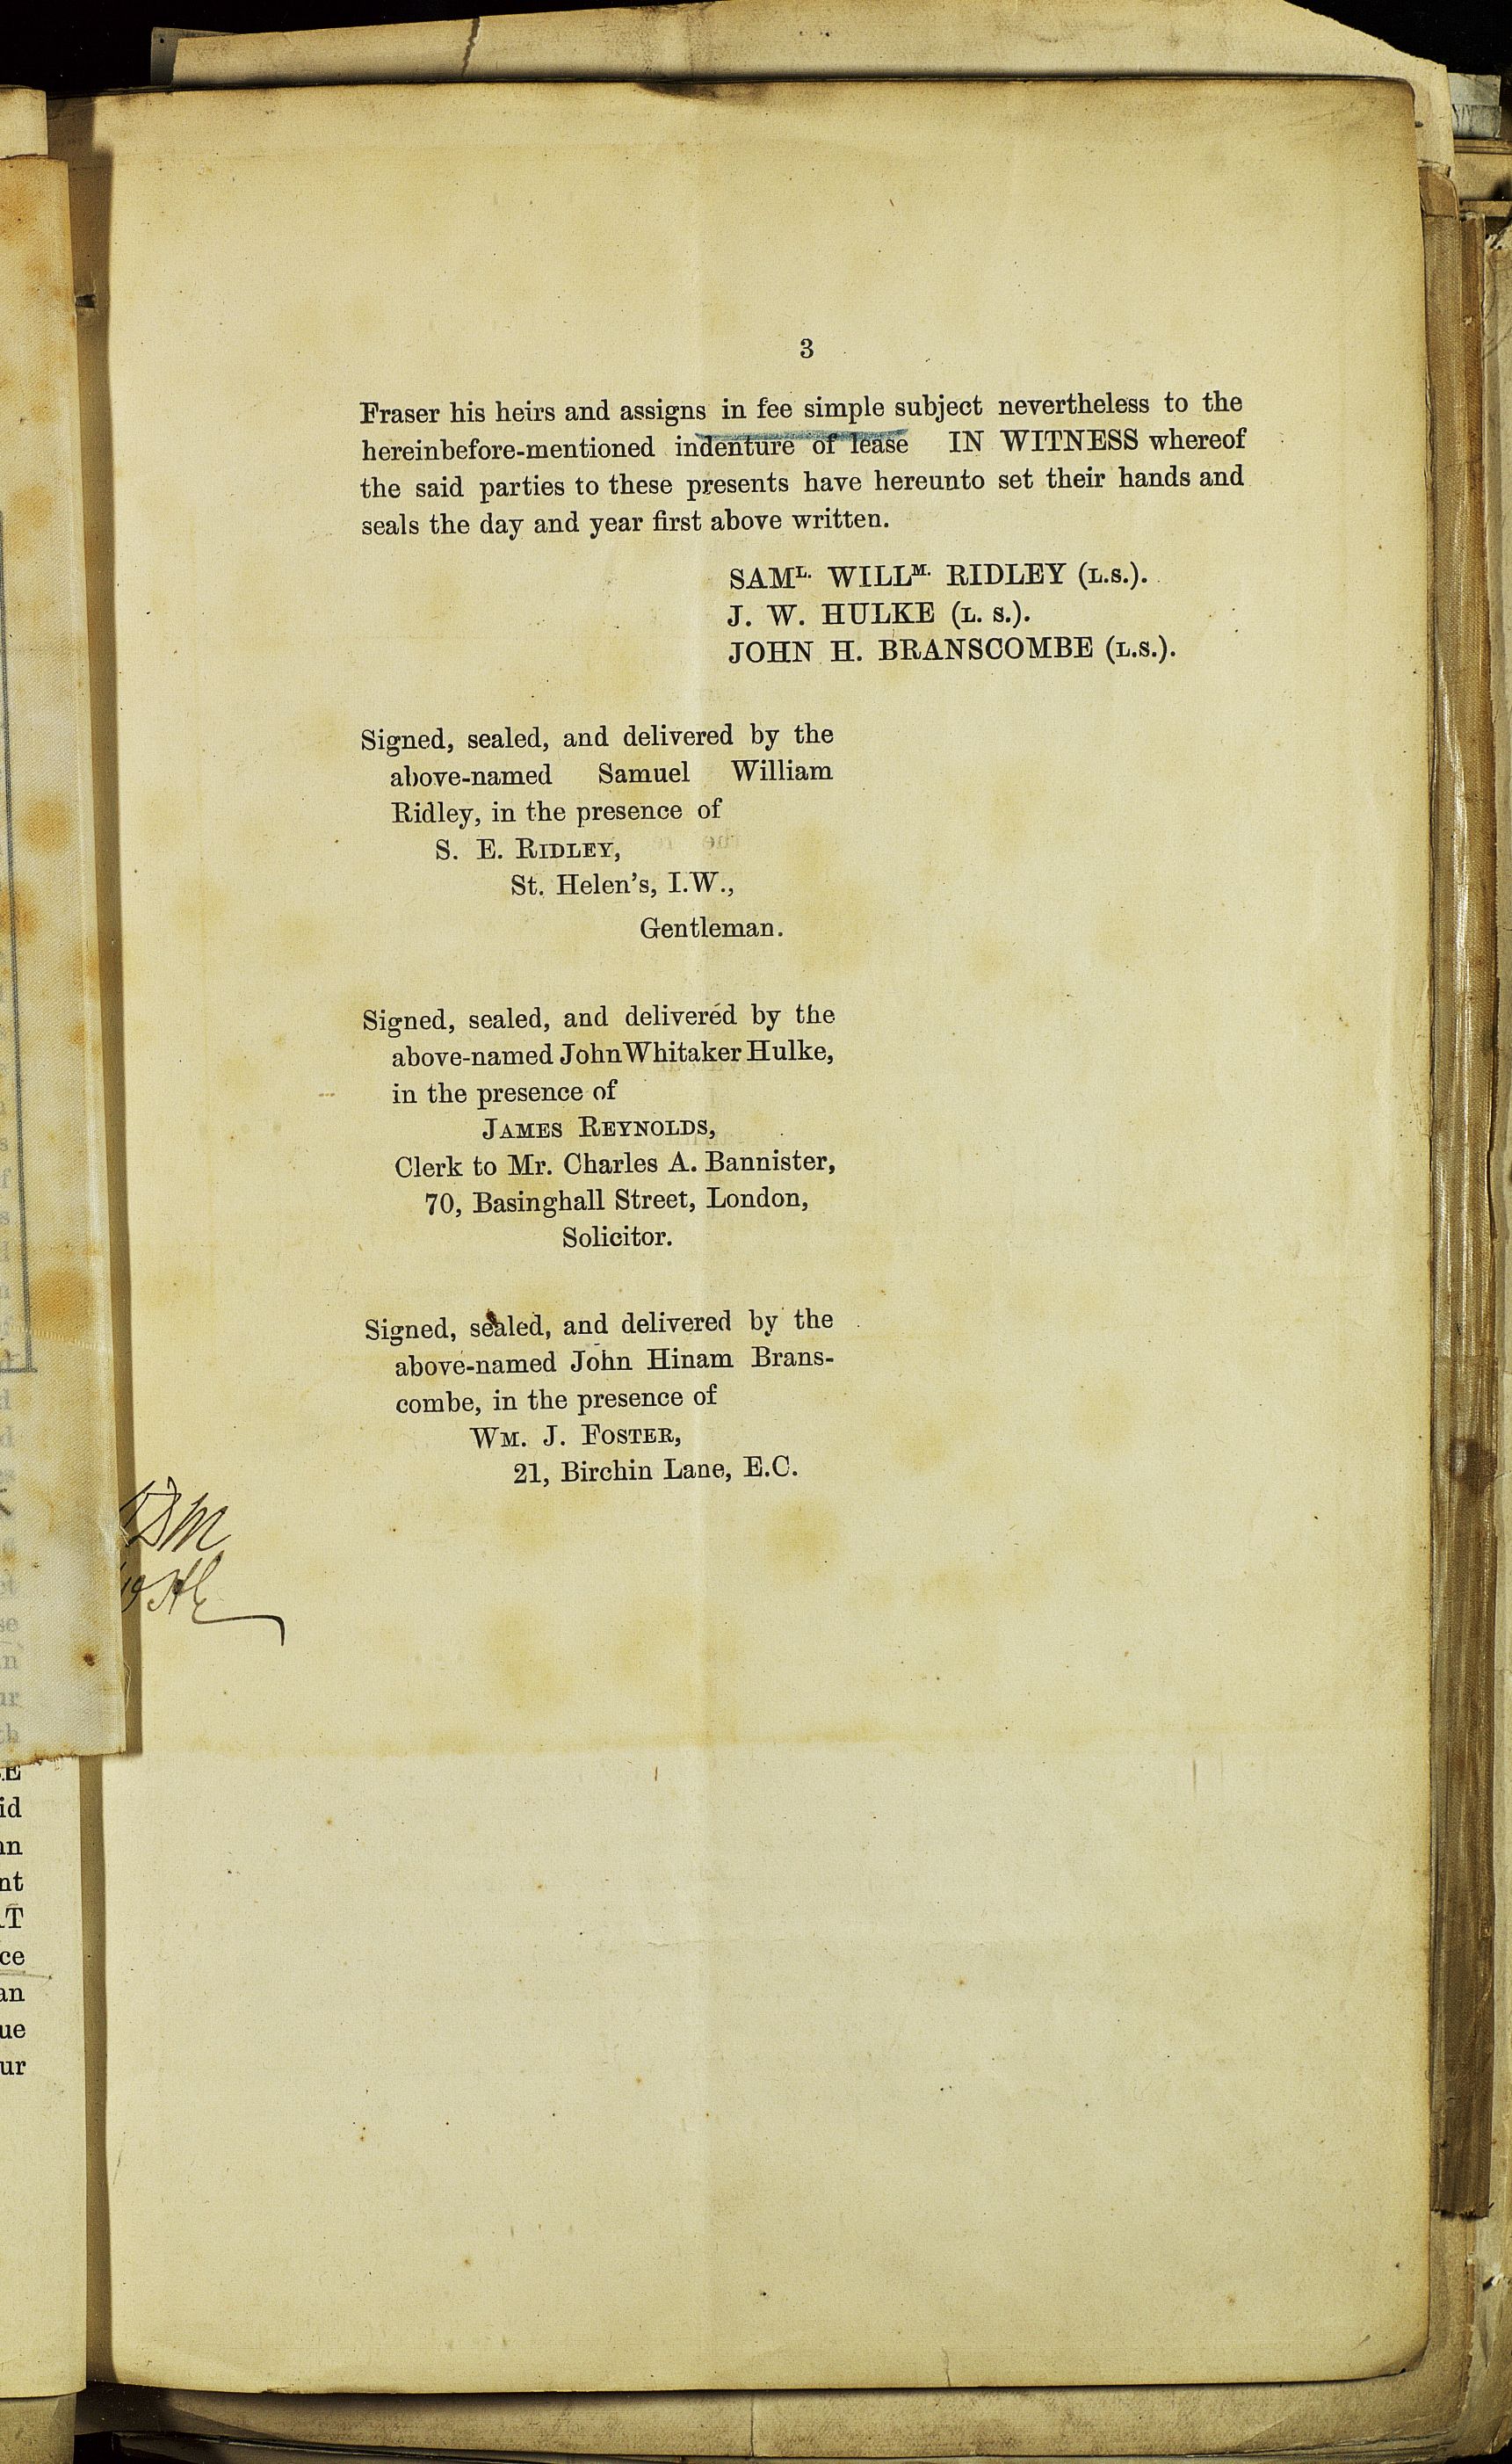 3
Fraser his heirs and assigns in fee simple subject nevertheless to the
hereinbefore-mentioned indenture of lease IN WITNESS whereof
the said parties to these presents have hereunto set their hands and
seals the day and year first above written.
SAML. WILLM. RIDLEY (L.S.).
J. W. HULKE (L. S.).
JOHN H. BRANSCOMBE (L.S.).
Signed, sealed, and delivered by the
above-named Samuel William
Ridley, in the presence of
S. E. RIDLEY,
St. Helen's, I.W.,
Gentleman.
Signed, sealed, and delivered by the
above-named John Whitaker Hulke,
in the presence of
JAMES REYNOLDS,
Clerk to Mr. Charles A. Bannister,
70, Basinghall Street, London,
Solicitor.
Signed, sealed, and delivered by the
above-named John Hinam Brans-
combe, in the presence of
WM. J. FOSTER,
21, Birchin Lane, E.C.